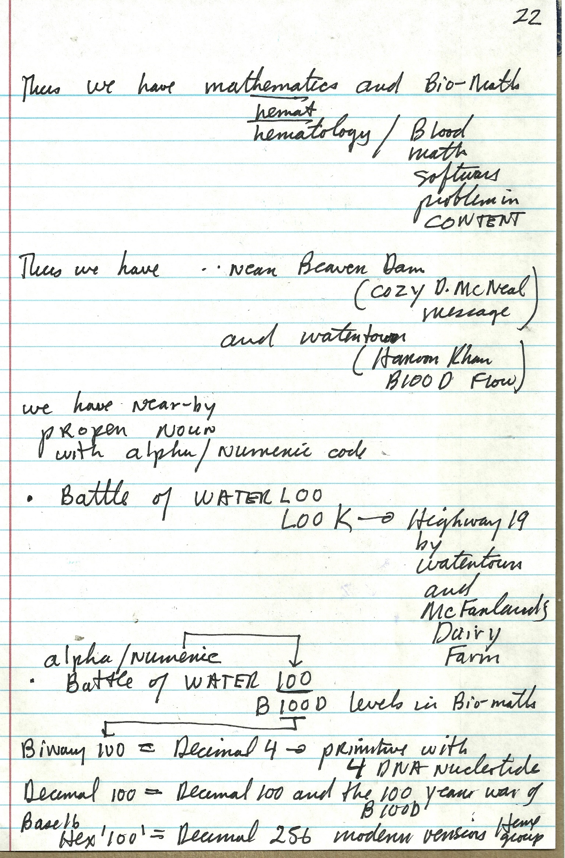 22
Thus we have mathematics and Bio-Math
hemat
hematology / Blood
math
software
problem in
CONTENT
Thus we have .. near Beaver Dam
(COZY D. McNeal
message)
and watertown
(Haroon Khan
B100D Flow)
we have near-by
proper noun
with alpha/numeric code
• Battle of WATERLOO
LOOK → Highway 19
by
watertown
and
McFarlands
Dairy
Farm
alpha/numeric
• Battle of WATER 100
B 100D levels in Bio-math
Binary 100 = Decimal 4 → primitive with
4 DNA nucleotide
Decimal 100 = Decimal 100 and the 100 years war of
B100D
Base 16
Hex '100' = Decimal 256 modern versions Heme
group